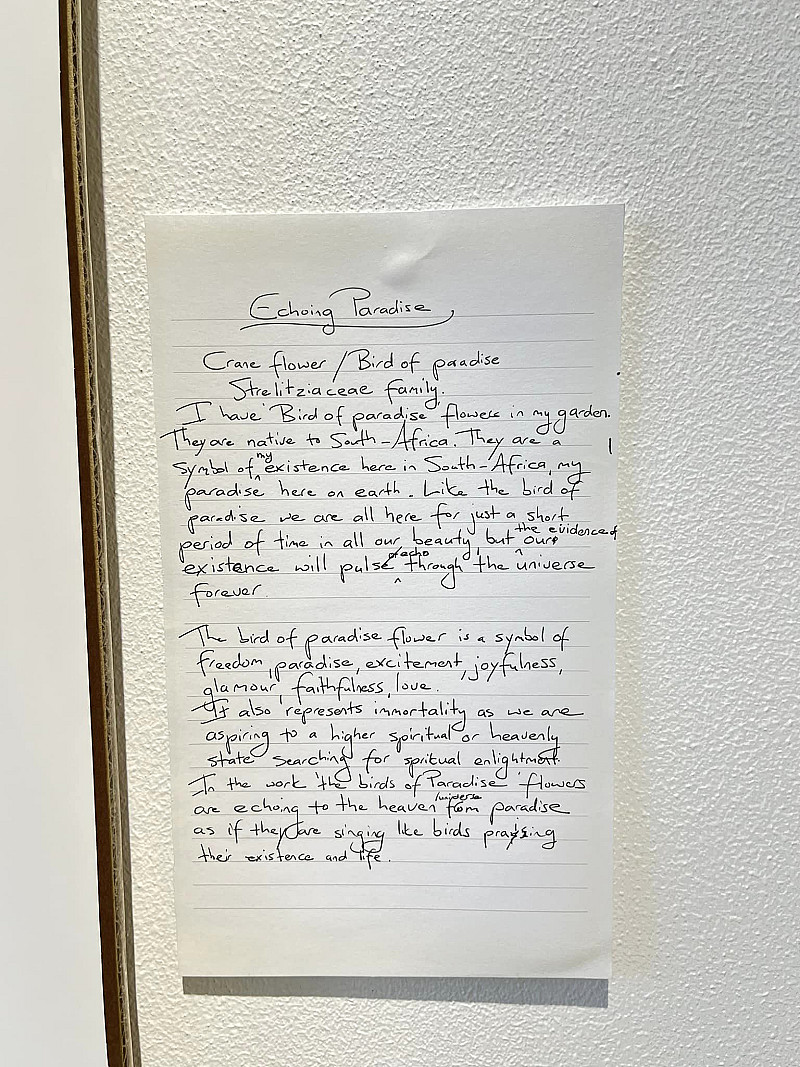 Echoing Paradise
Crane flower / Bird of paadise
Strelitziaceae family.
I have 'Bird of paradise' flowers in my garden.
They are native to South-Africa. They are a
symbol of my existence here in South-Africa, my
paradise here on earth. Like the bird of
paradise we are all here for just a short
period of time in all our beauty, but the evidence of our
existence will pulse / echo through the universe
forever.
The bird of paradise flower is a symbol of
freedom, paradise, excitement, joyfulness,
glamour, faithfulness, love.
It also represents immortality as we are
aspiring to a higher spiritual or heavenly
state searching for spritual enlightment.
In the work 'the birds of Paradise' flowers
are echoing to the heaven /universe from paradise
as if they are singing like birds praising
their existence and life.